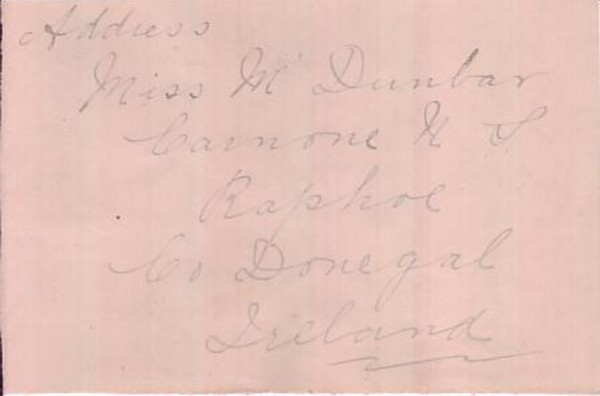 Address
Miss M Dunbar
Carnone N S
Raphoe
Co Donegal
Ireland